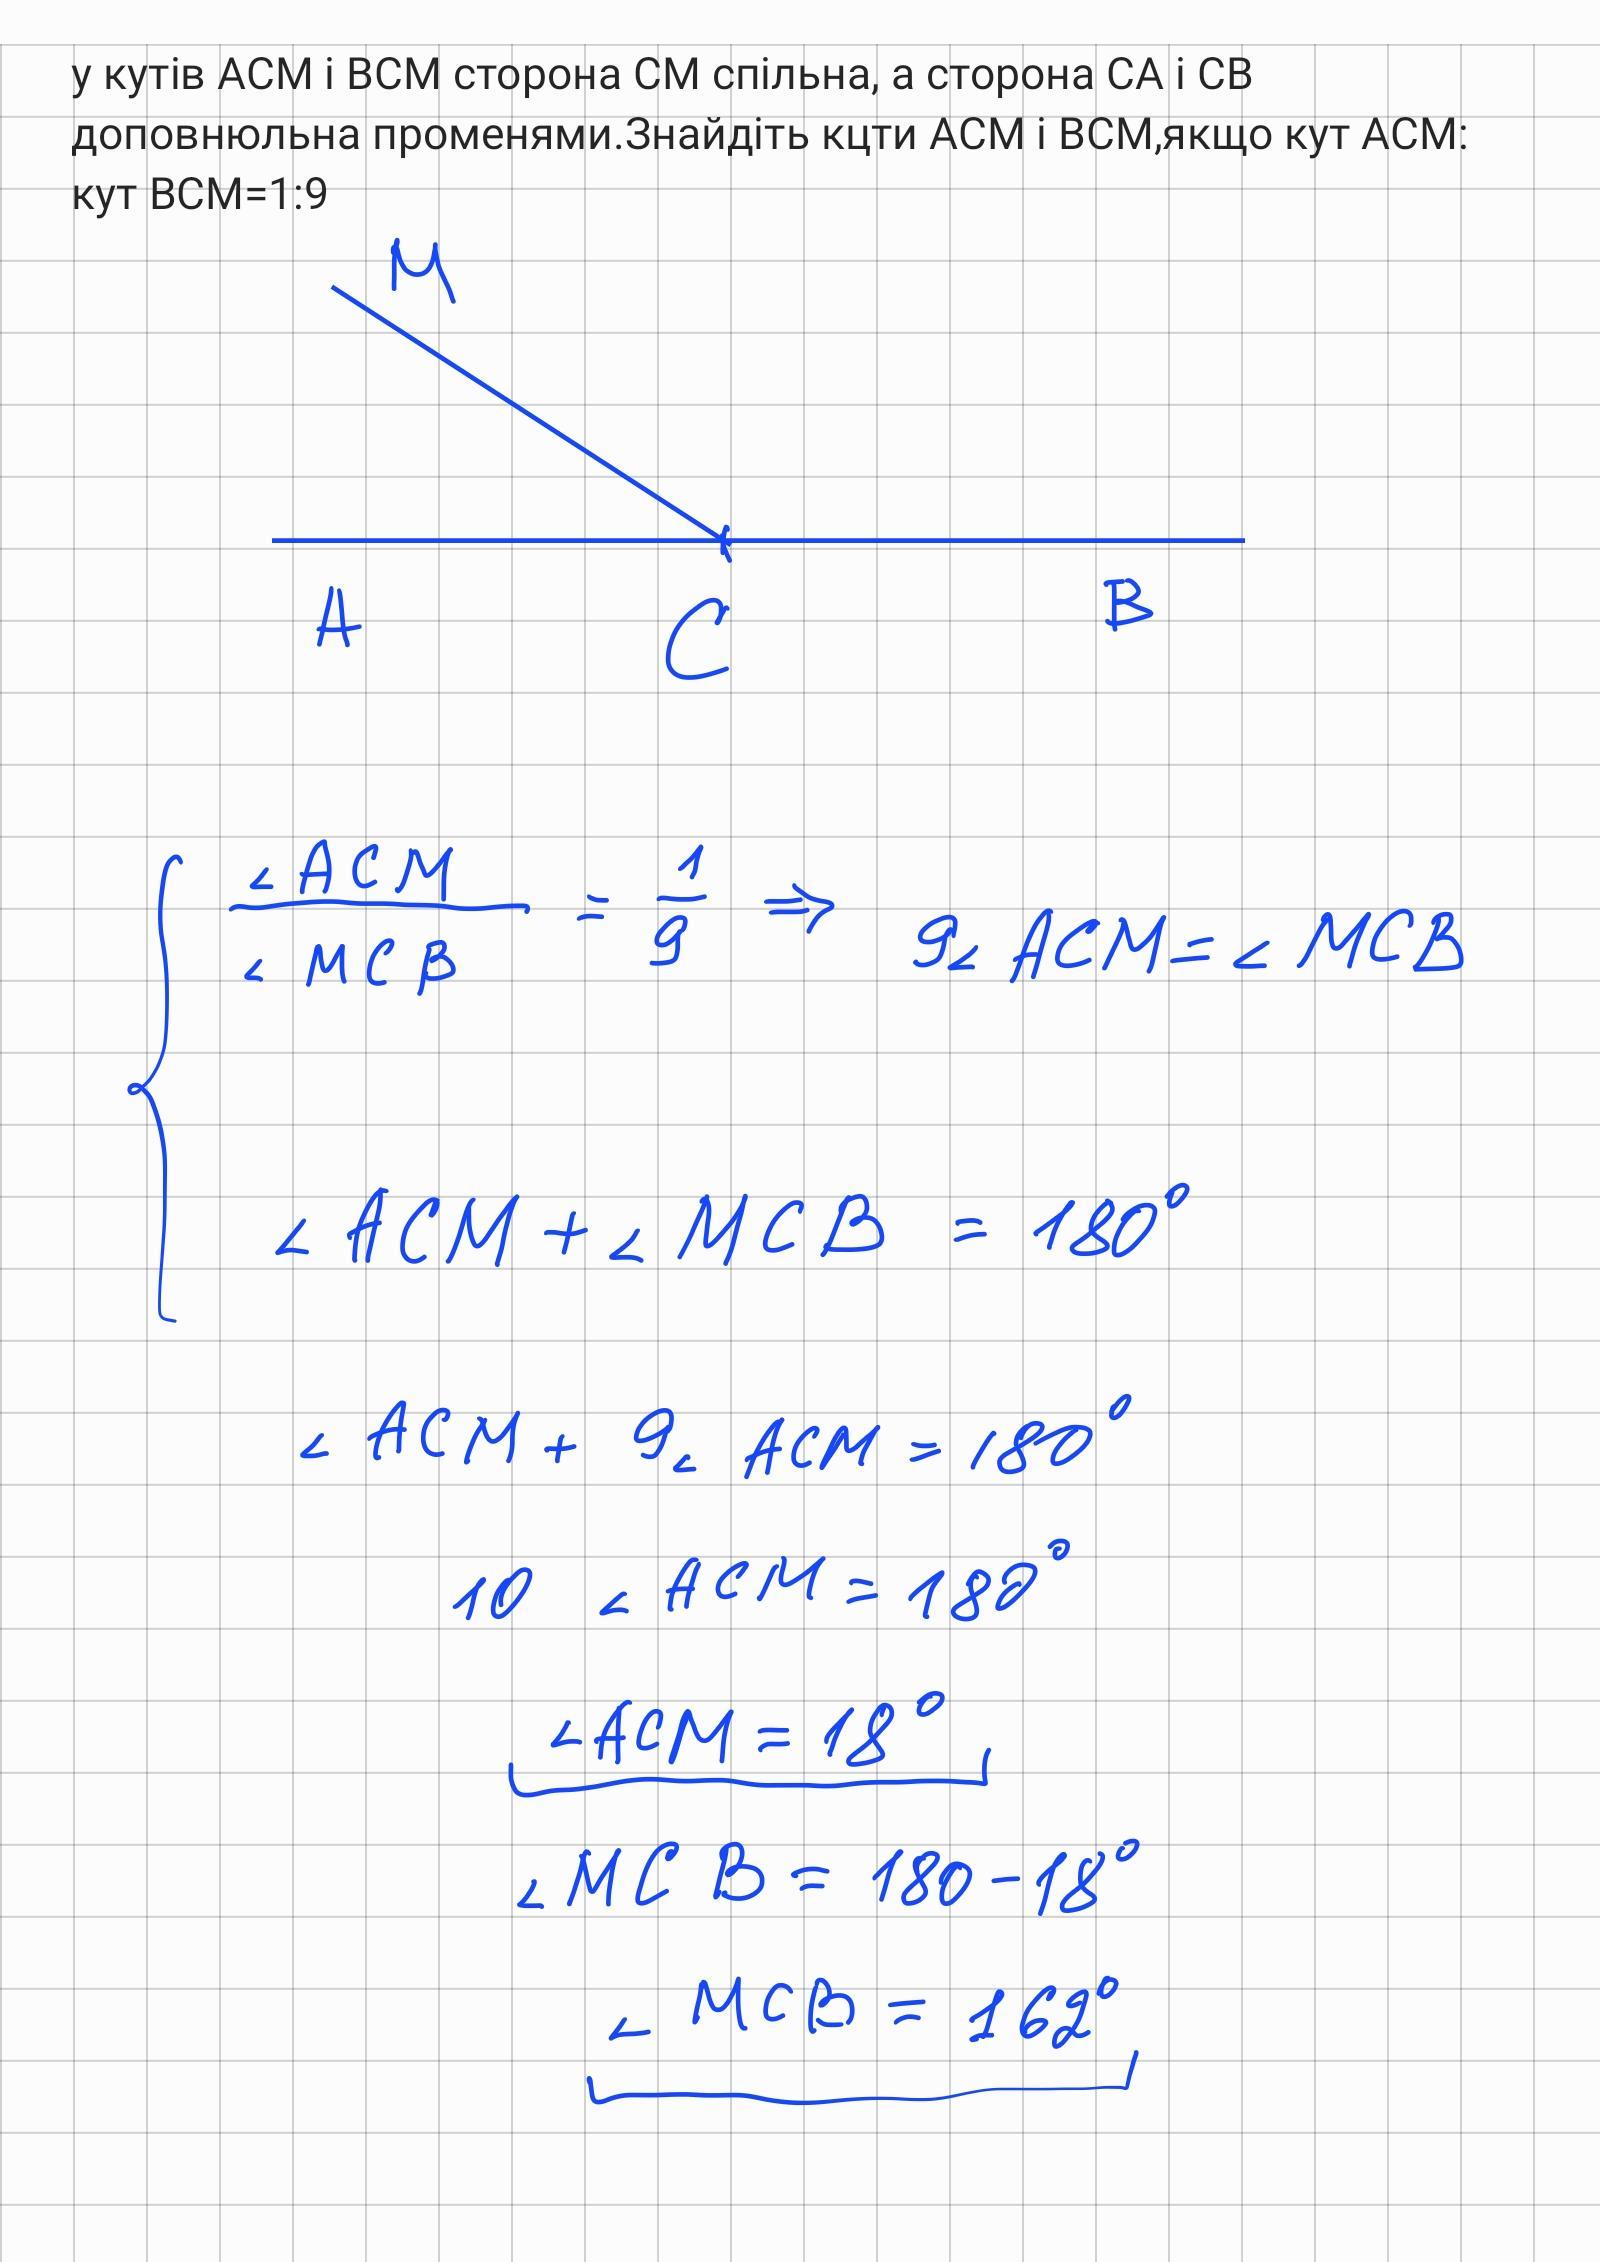 у кутів АСМ і ВСМ сторона СМ спільна, а сторона СА і СВ
доповнюльна променями.Знайдіть кцти АСМ і ВСМ,якщо кут АСМ:
кут ВСМ=1:9
M
A
C
B
∠ACM / ∠MCB = 1/9 ⇒ 9∠ACM = ∠MCB
∠ACM + ∠MCB = 180°
∠ACM + 9∠ACM = 180°
10 ∠ACM = 180°
∠ACM = 18°
∠MCB = 180 - 18°
∠MCB = 162°